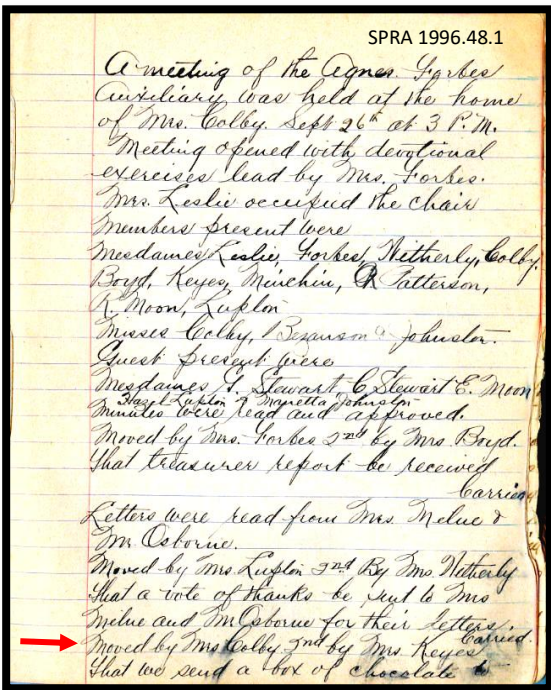 SPRA 1996.48.1
A meeting of the Agnes. Forbes
Auxiliary was held at the home
of Mrs. Colby. Sept 26th at 3 P.M.
Meeting opened with devotional
exercises lead by Mrs. Forbes.
Mrs. Leslie occupied the chair
Members present were
Mesdames Leslie, Forbes, Witherly, Colby.
Boyd, Keyes, Minchin, R Patterson,
R. Moon, Lupton
Misses Colby, Bezanson & Johnston.
Guest present were
Mesdames G. Stewart. C Stewart E. Moon
Hazel Lupton & Marietta Johnston
Minutes were read and approved.
Moved by Mrs. Forbes 2nd by Mrs. Boyd.
That treasurer report be received
Carried
Letters were read from Mrs. Melue &
Mr. Osborne.
Moved by Mrs Lupton 2nd By Mrs. Witherly
That a vote of thanks be sent to Mrs
Melue and Mr Osborne for their letters.
Carried.
Moved by Mrs Colby 2nd by Mrs. Keyes
That we send a box of chocolate to